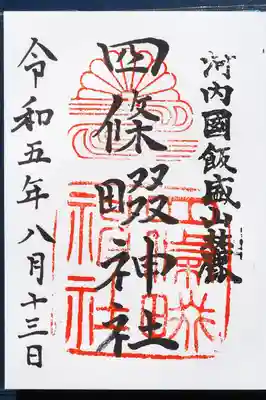 河内國飯盛山麓
四條畷神社
令和五年八月十三日